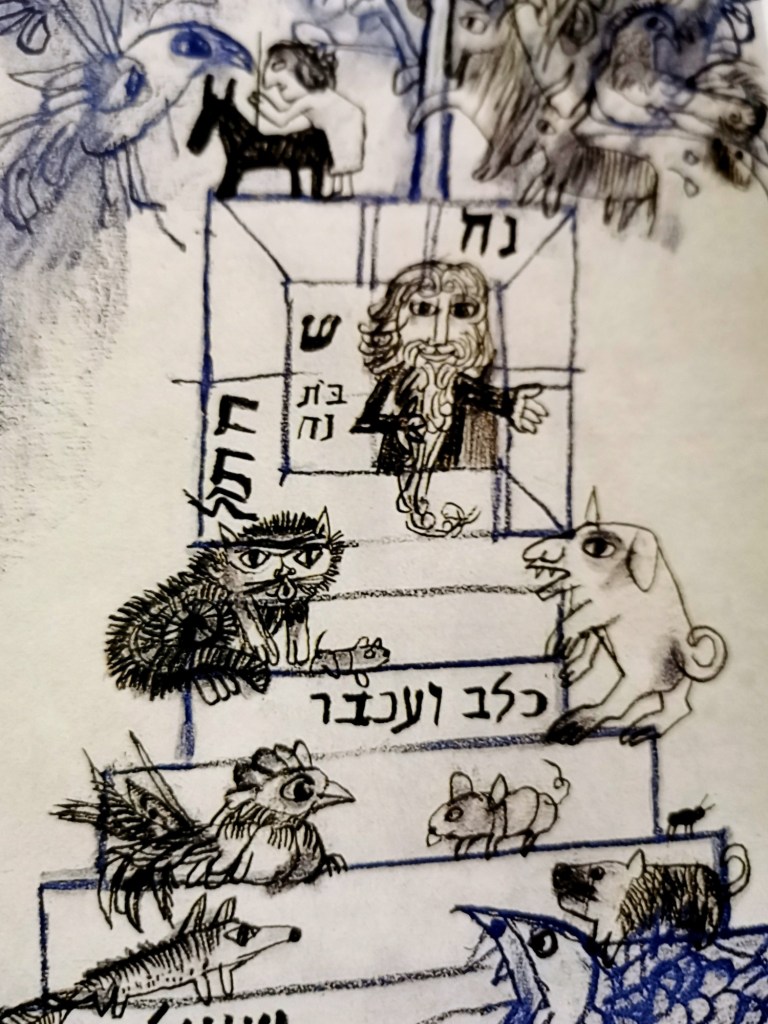 נח
ש
בת
נח
חתול
כלב ועכבר